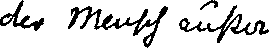 der Mensch außer